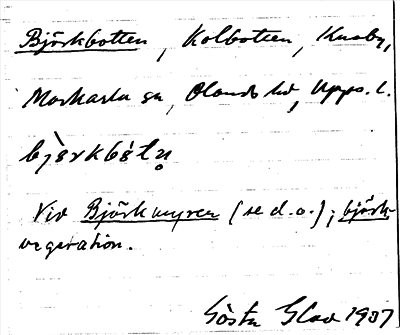 Björkbotten, Kolbotten, Knaby,
Morkarla sn, Olands hd, Upps. l.
bjàrkbótn̥
Vid Björkmyren (se d. o.); björk-
vegetation.
Gösta Glad 1907